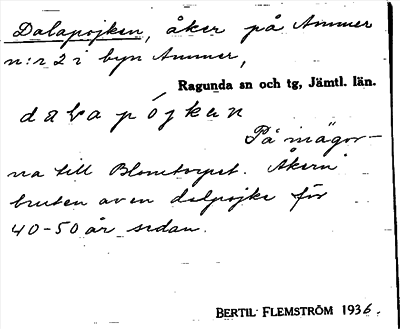 Dalapojken, åker på Ammer
n:r 2 i byn Ammer,
Ragunda sn och tg, Jämtl. län.
dalapójken
På inägor-
na till Blomtorpet. Åkern
bruten av en dalpojke för
40-50 år sedan.
BERTIL FLEMSTRÖM 1936.